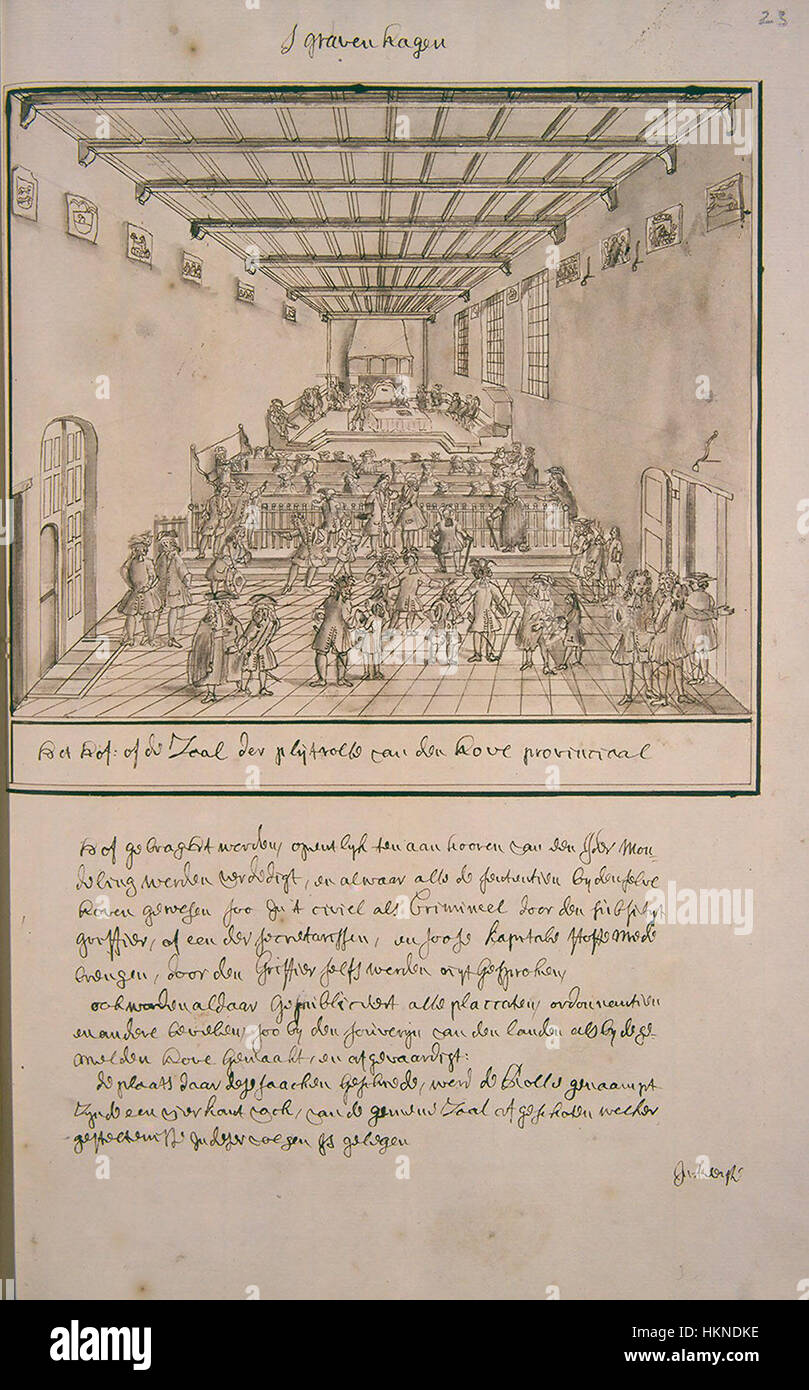 23
S gravenhagen
Het Hof: of de Zaal der pleytrolle van den hove provinciaal
Hof gebragt werden, opentlijk ten aan hooren van een Jder Mon-
deling werden verdedigt, en alwaar alle de sententien by denselve
hoven gewesen soo in't civiel als Crimineel door den
griffier, of een der secretarissen, en soo se kapitale stoffe mede
brengen, door den Griffier selfs werden uytgesproken,
ook worden aldaar gepubliceert alle placcaten, ordonnantien
en andere bevelen, soo by den souverijn van den landen als by de ge-
melden hove gemaakt, en afgevaardigt:
de plaats daar dese saacken geschiede, werd de Rolle genaampt
zynde een vierkant vack, van de gemene Zaal afgeschoten welker
gesteltenisse in deser volgen is gelegen
alamy stock photo
Image ID: HKNDKE
www.alamy.com